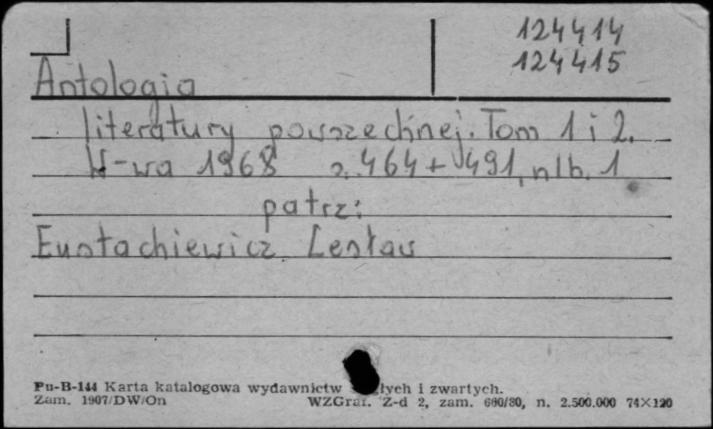 124414
124415
Antologia
literatury powszechnej. Tom 1 i 2.
W-wa 1968 s. 464 + 491, nlb. 1
patrz:
Eustachiewicz Lesław
Pu-B-144 Karta katalogowa wydawnictw i zwartych.
Zam. 1907/DW/On WZGraf. Z-d 2, zam. 660/80, n. 2.500.000 74×120